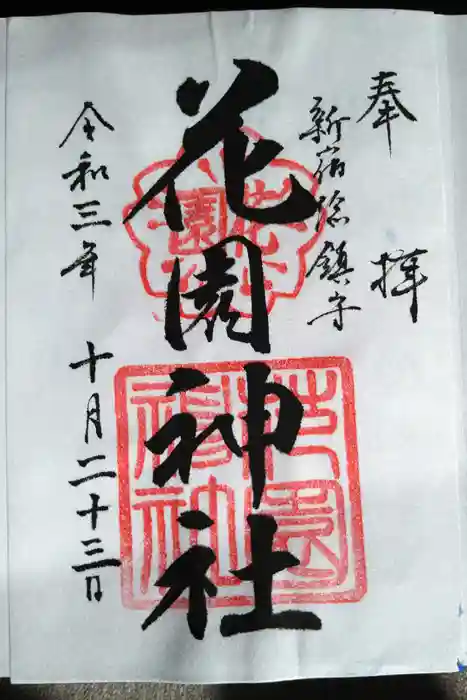 奉拝
新宿総鎮守
花園神社
令和三年 十月二十三日
花園
神社
花園
神社